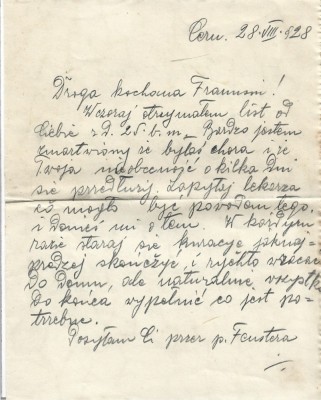 Cern. 28.VIII.928
Droga kochana Franusiu!
Wczoraj otrzymałem list od
Ciebie z d. 25 b.m. Bardzo jestem
zmartwiony że byłaś chora i że
Twoja nieobecność o kilka dni
się przedłuży. Zapytaj lekarza
co mogło być powodem tego,
i donieś mi o tem. W każdym
razie staraj się kurację jaknaj-
prędzej skończyć, i rychło wracać
do domu, ale naturalnie wszystko
do końca wypełnić co jest po-
trzebne.
Posyłam Ci przez p. Fenstera